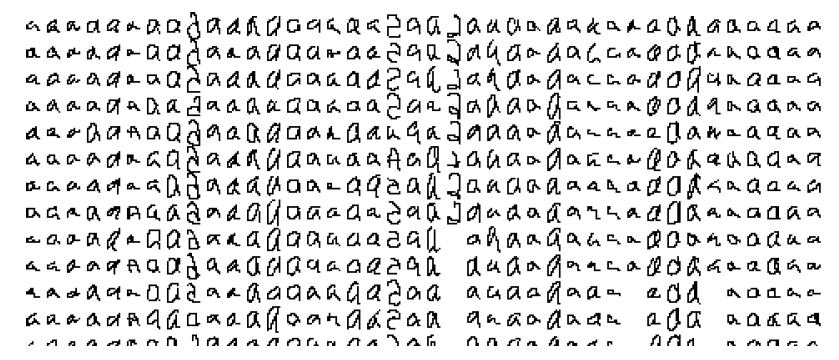 a a a a a a a a a a a a a a a a a a a a a a a a a a a a a a a a a a a a a a a a
a a a a a a a a a a a a a a a a a a a a a a a a a a a a a a a a a a a a a a a a
a a a a a a a a a a a a a a a a a a a a a a a a a a a a a a a a a a a a a a a a
a a a a a a a a a a a a a a a a a a a a a a a a a a a a a a a a a a a a a a a a
a a a a a a a a a a a a a a a a a a a a a a a a a a a a a a a a a a a a a a a a
a a a a a a a a a a a a a a a a a a a a a a a a a a a a a a a a a a a a a a a a
a a a a a a a a a a a a a a a a a a a a a a a a a a a a a a a a a a a a a a a a
a a a a a a a a a a a a a a a a a a a a a a a a a a a a a a a a a a a a a a a a
a a a a a a a a a a a a a a a a a a a a a a a a a a a a a a a a a a a a a a a
a a a a a a a a a a a a a a a a a a a a a a a a a a a a a a a a a a a a a a a
a a a a a a a a a a a a a a a a a a a a a a a a a a a a a a a a a a a a a
a a a a a a a a a a a a a a a a a a a a a a a a a a a a a a a a a a a a a